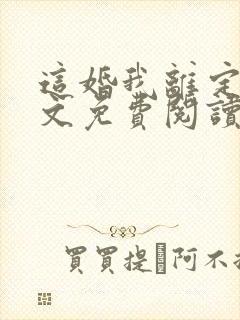 這婚我離定
文免費閱讀
買買提�阿不